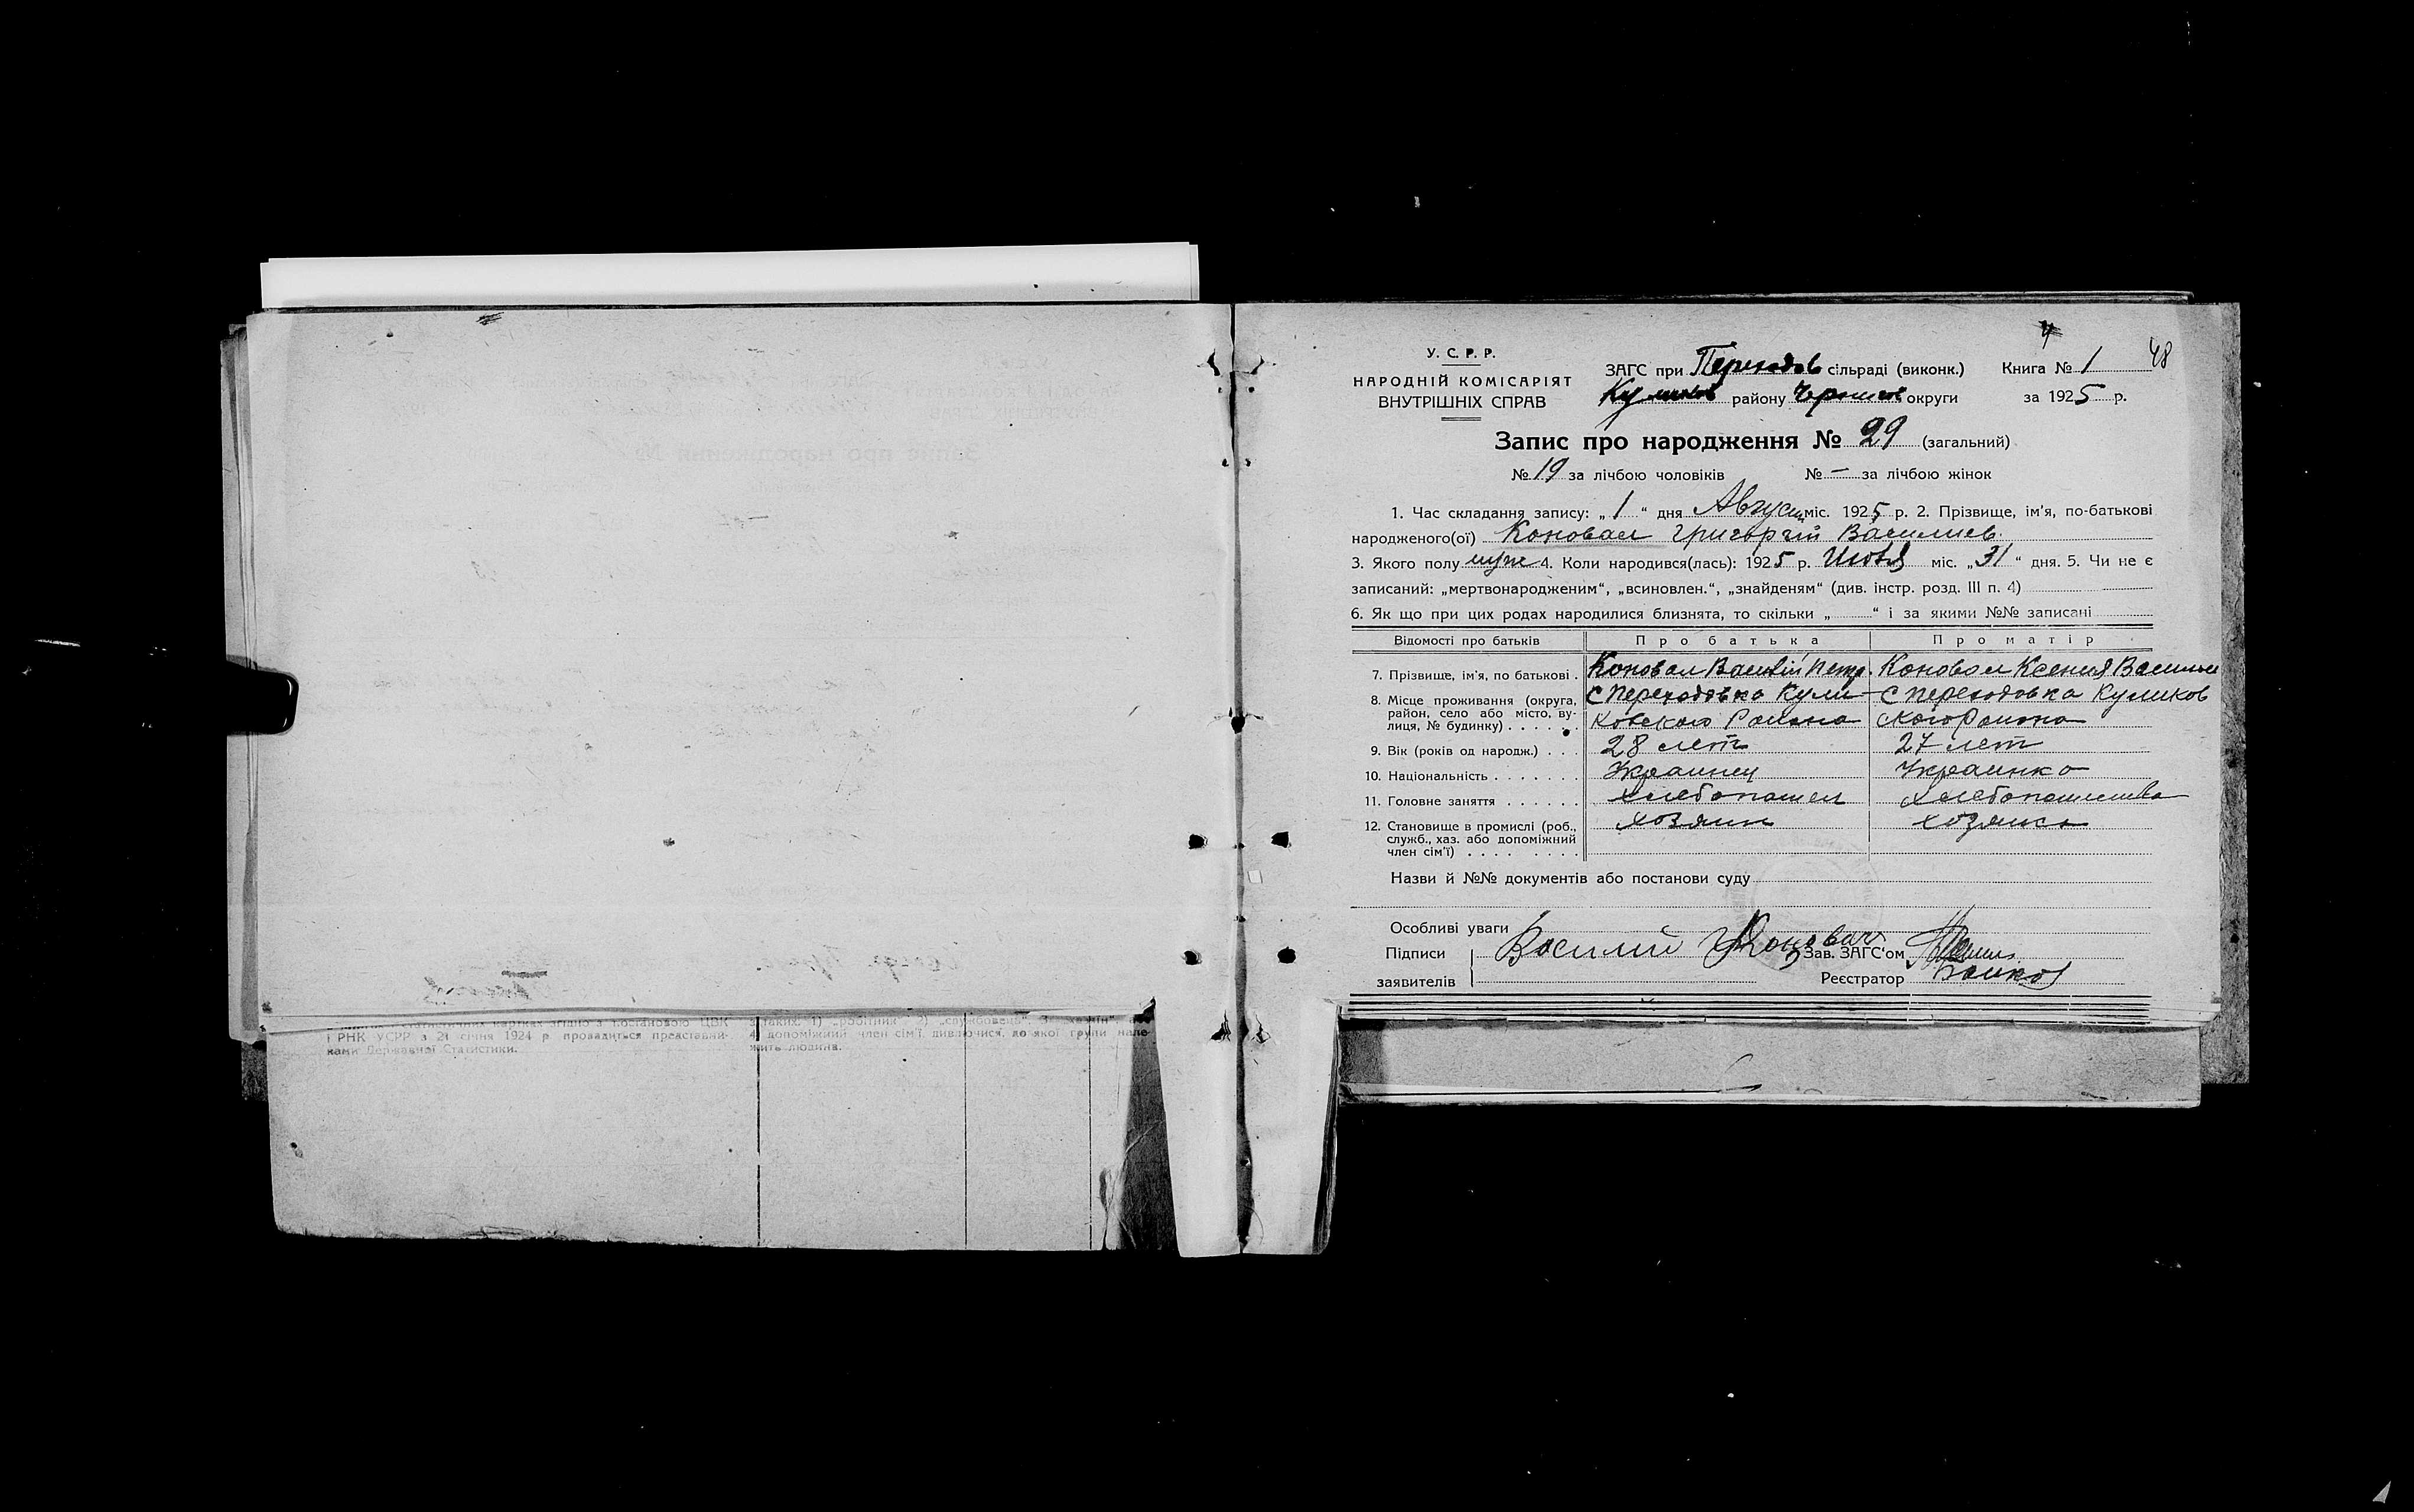 У. С. Р. Р.
НАРОДНІЙ КОМІСАРІЯТ
ВНУТРІШНІХ СПРАВ
ЗАГС при Переходов сільраді (виконк.)
Куликов району Чернигов округи
Книга № 1
48
за 1925 р.
Запис про народження № 29 (загальний)
№ 19 за лічбою чоловіків № — за лічбою жінок
1. Час складання запису: „ 1 “ дня Август міс. 1925 р. 2. Прізвище, ім'я, по-батькові
народженого(ої) Коновал Григоргій Василиев
3. Якого полу муж 4. Коли народився(лась): 1925 р. Июля міс. „31“ дня. 5. Чи не є
записаний: „мертвонародженим“, „всиновлен.“, „знайденям“ (див. інстр. розд. III п. 4)
6. Як що при цих родах народилися близнята, то скільки „ “ і за якими №№ записані
Відомості про батьків Про батька Про матір
7. Прізвище, ім'я, по батькові . Коновал Василій Петр. Коновал Ксения Васильев
8. Місце проживання (округа, с Переходовка Кули- с Переходовка Куликов
район, село або місто, ву-
лиця, № будинку) . . . . . ковского Района ского Района
9. Вік (років од народж.) . . . 28 лет 27 лет
10. Національність . . . . . . . Украинец Украинка
11. Головне заняття . . . . . . хлебопашец хлебопашество
12. Становище в промислі (роб., хозяин хозяйка
служб., хаз. або допоміжний
член сім'ї) . . . . . . . .
Назви й №№ документів або постанови суду
Особливі уваги
Підписи Василий Коновал Зав. ЗАГС'ом
заявителів Реєстратор
і РНК УСРР з 21 січня 1924 р. провадиться представни-
ками Державної Статистики.
з таких: 1) „робітник“ 2) „службовець“
4) допоміжний член сім'ї, дивлючися, до якої групи нале-
жить людина.